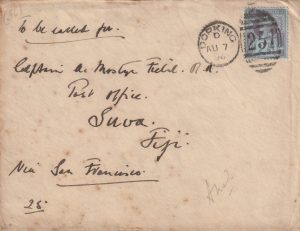 To be called for.
DORKING
D
AU 7
Captain A. Mostyn Field. R.N.
Post Office.
Suva.
Fiji.
Via San Francisco.